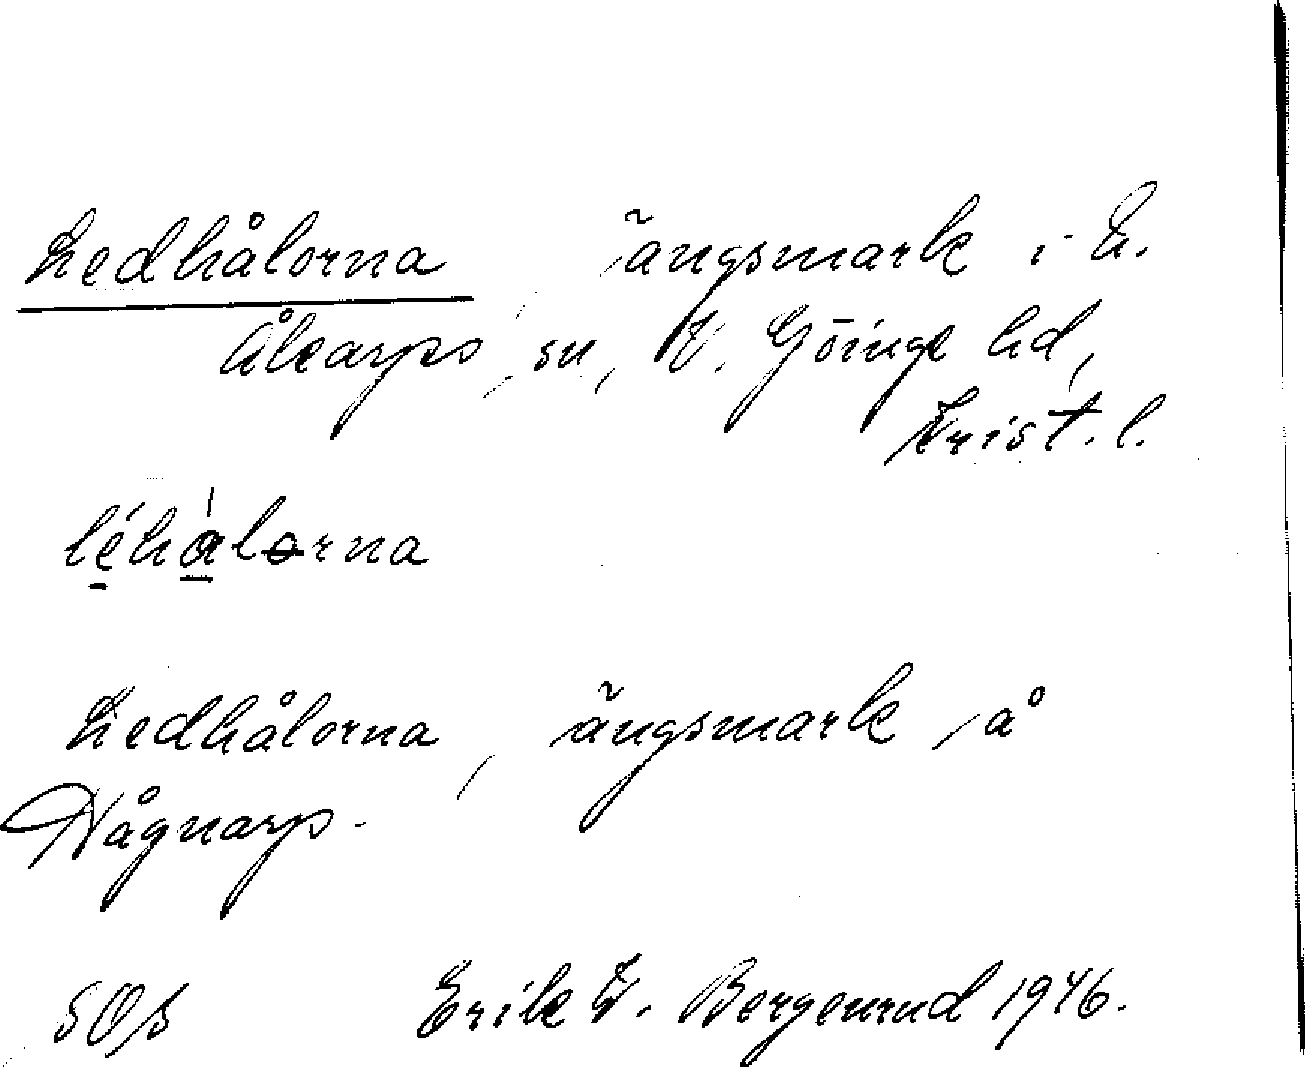 Ledhålorna, ängsmark i L.
Åkarps sn, V. Göinge hd,
Krist. l.
léhàlorna
Ledhålorna, ängsmark å
Någnarp.
SOS Erik F. Bergenrud 1946.